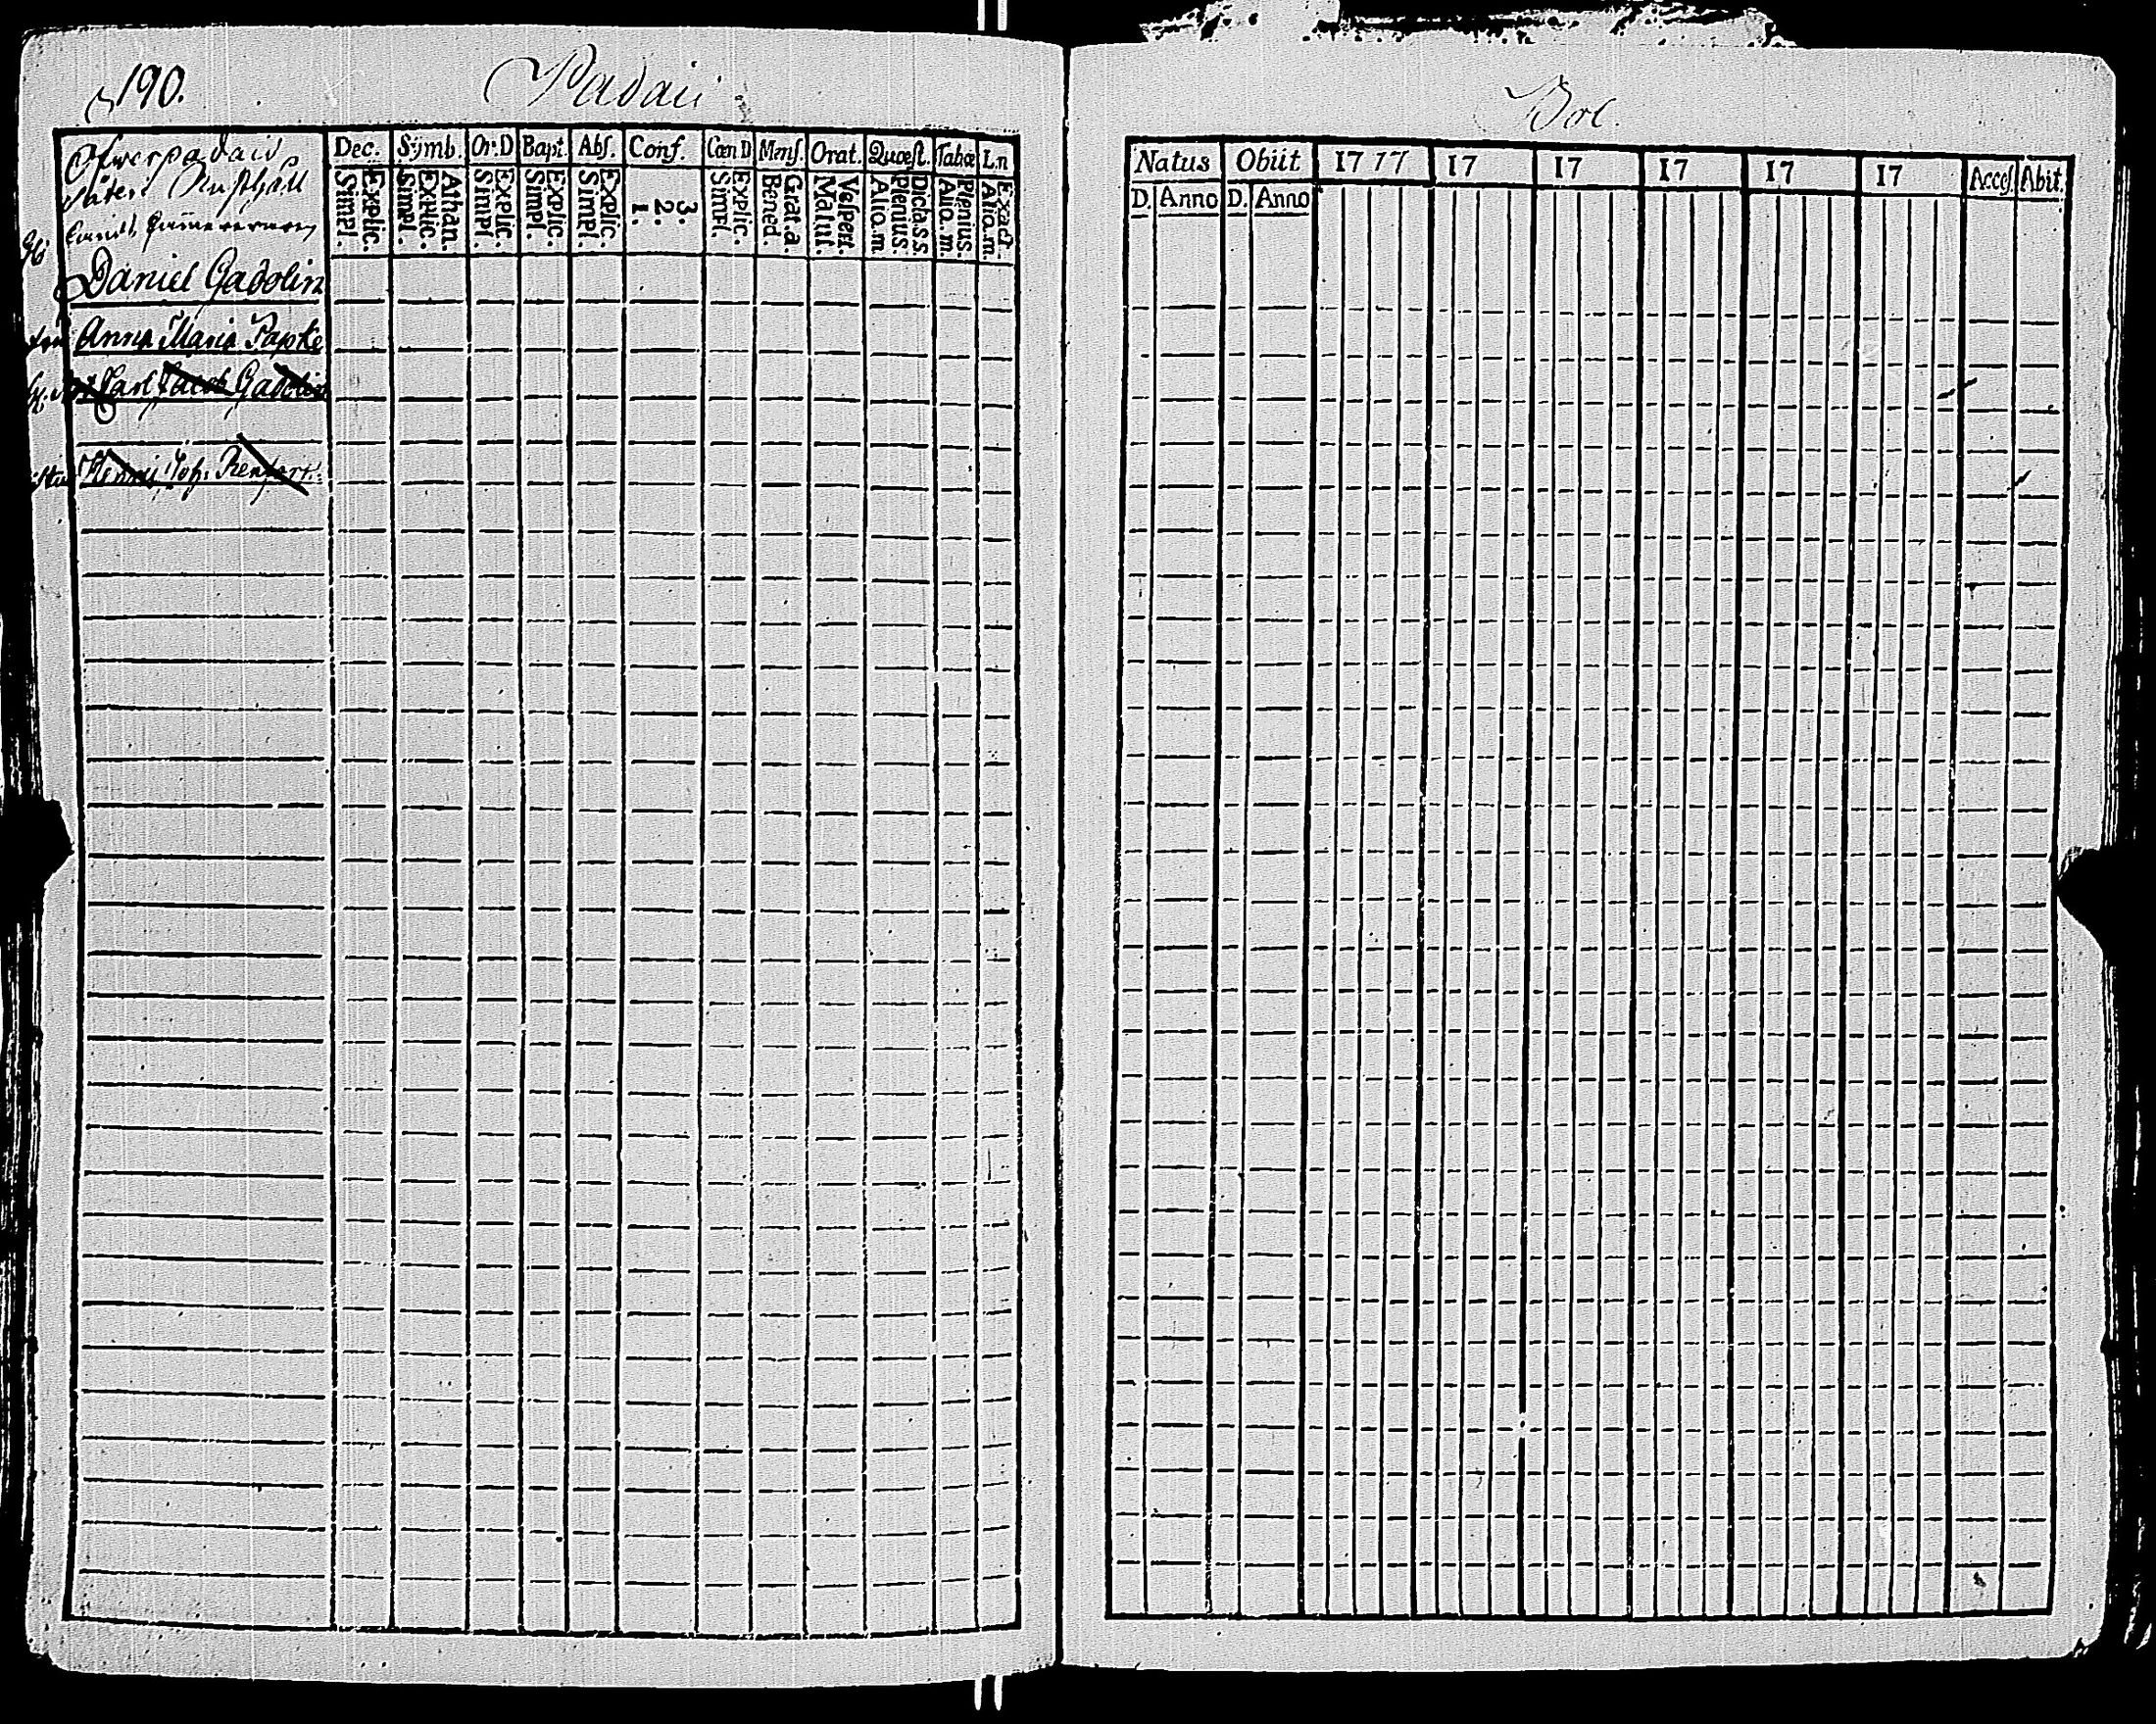 190.
Padaii
Ofwerpadais
Säteri Rusthåll
Daniel Gadolin
Anna Maria Papke
Carl Jacob Gadolin
Dec. Symb. Or.D Bapt. Abſ. Conf. Cœn D Menſ. Orat. Quœſt. Tabœ L.n
Explic. Simpl. Athan. Explic. Simpl. Explic. Simpl. Explic. Simpl. Explic. Simpl. 3. 2. 1. Explic. Simpl. Grat.a Bened. Veſpert. Matut. Dicta s.s. Plenius. Alio.m Plenius. Alio.m. Exact. Alio.m.
Bol.
Natus Obiit 17 77 17 17 17 17 17 Acceſ. Abit.
D. Anno D. Anno